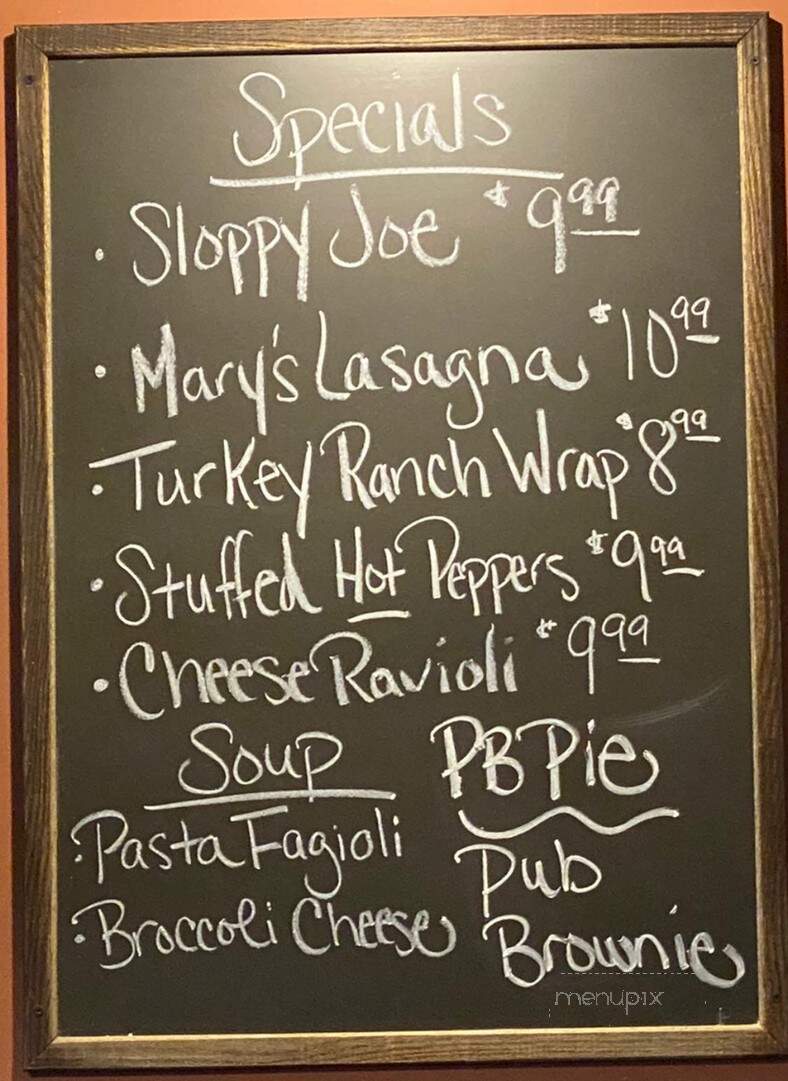 Specials
· Sloppy Joe $9.99
· Mary's Lasagna $10.99
· Turkey Ranch Wrap $8.99
· Stuffed Hot Peppers $9.99
· Cheese Ravioli $9.99
Soup
· Pasta Fagioli
· Broccoli Cheese
PB Pie
Pub
Brownie
menupix